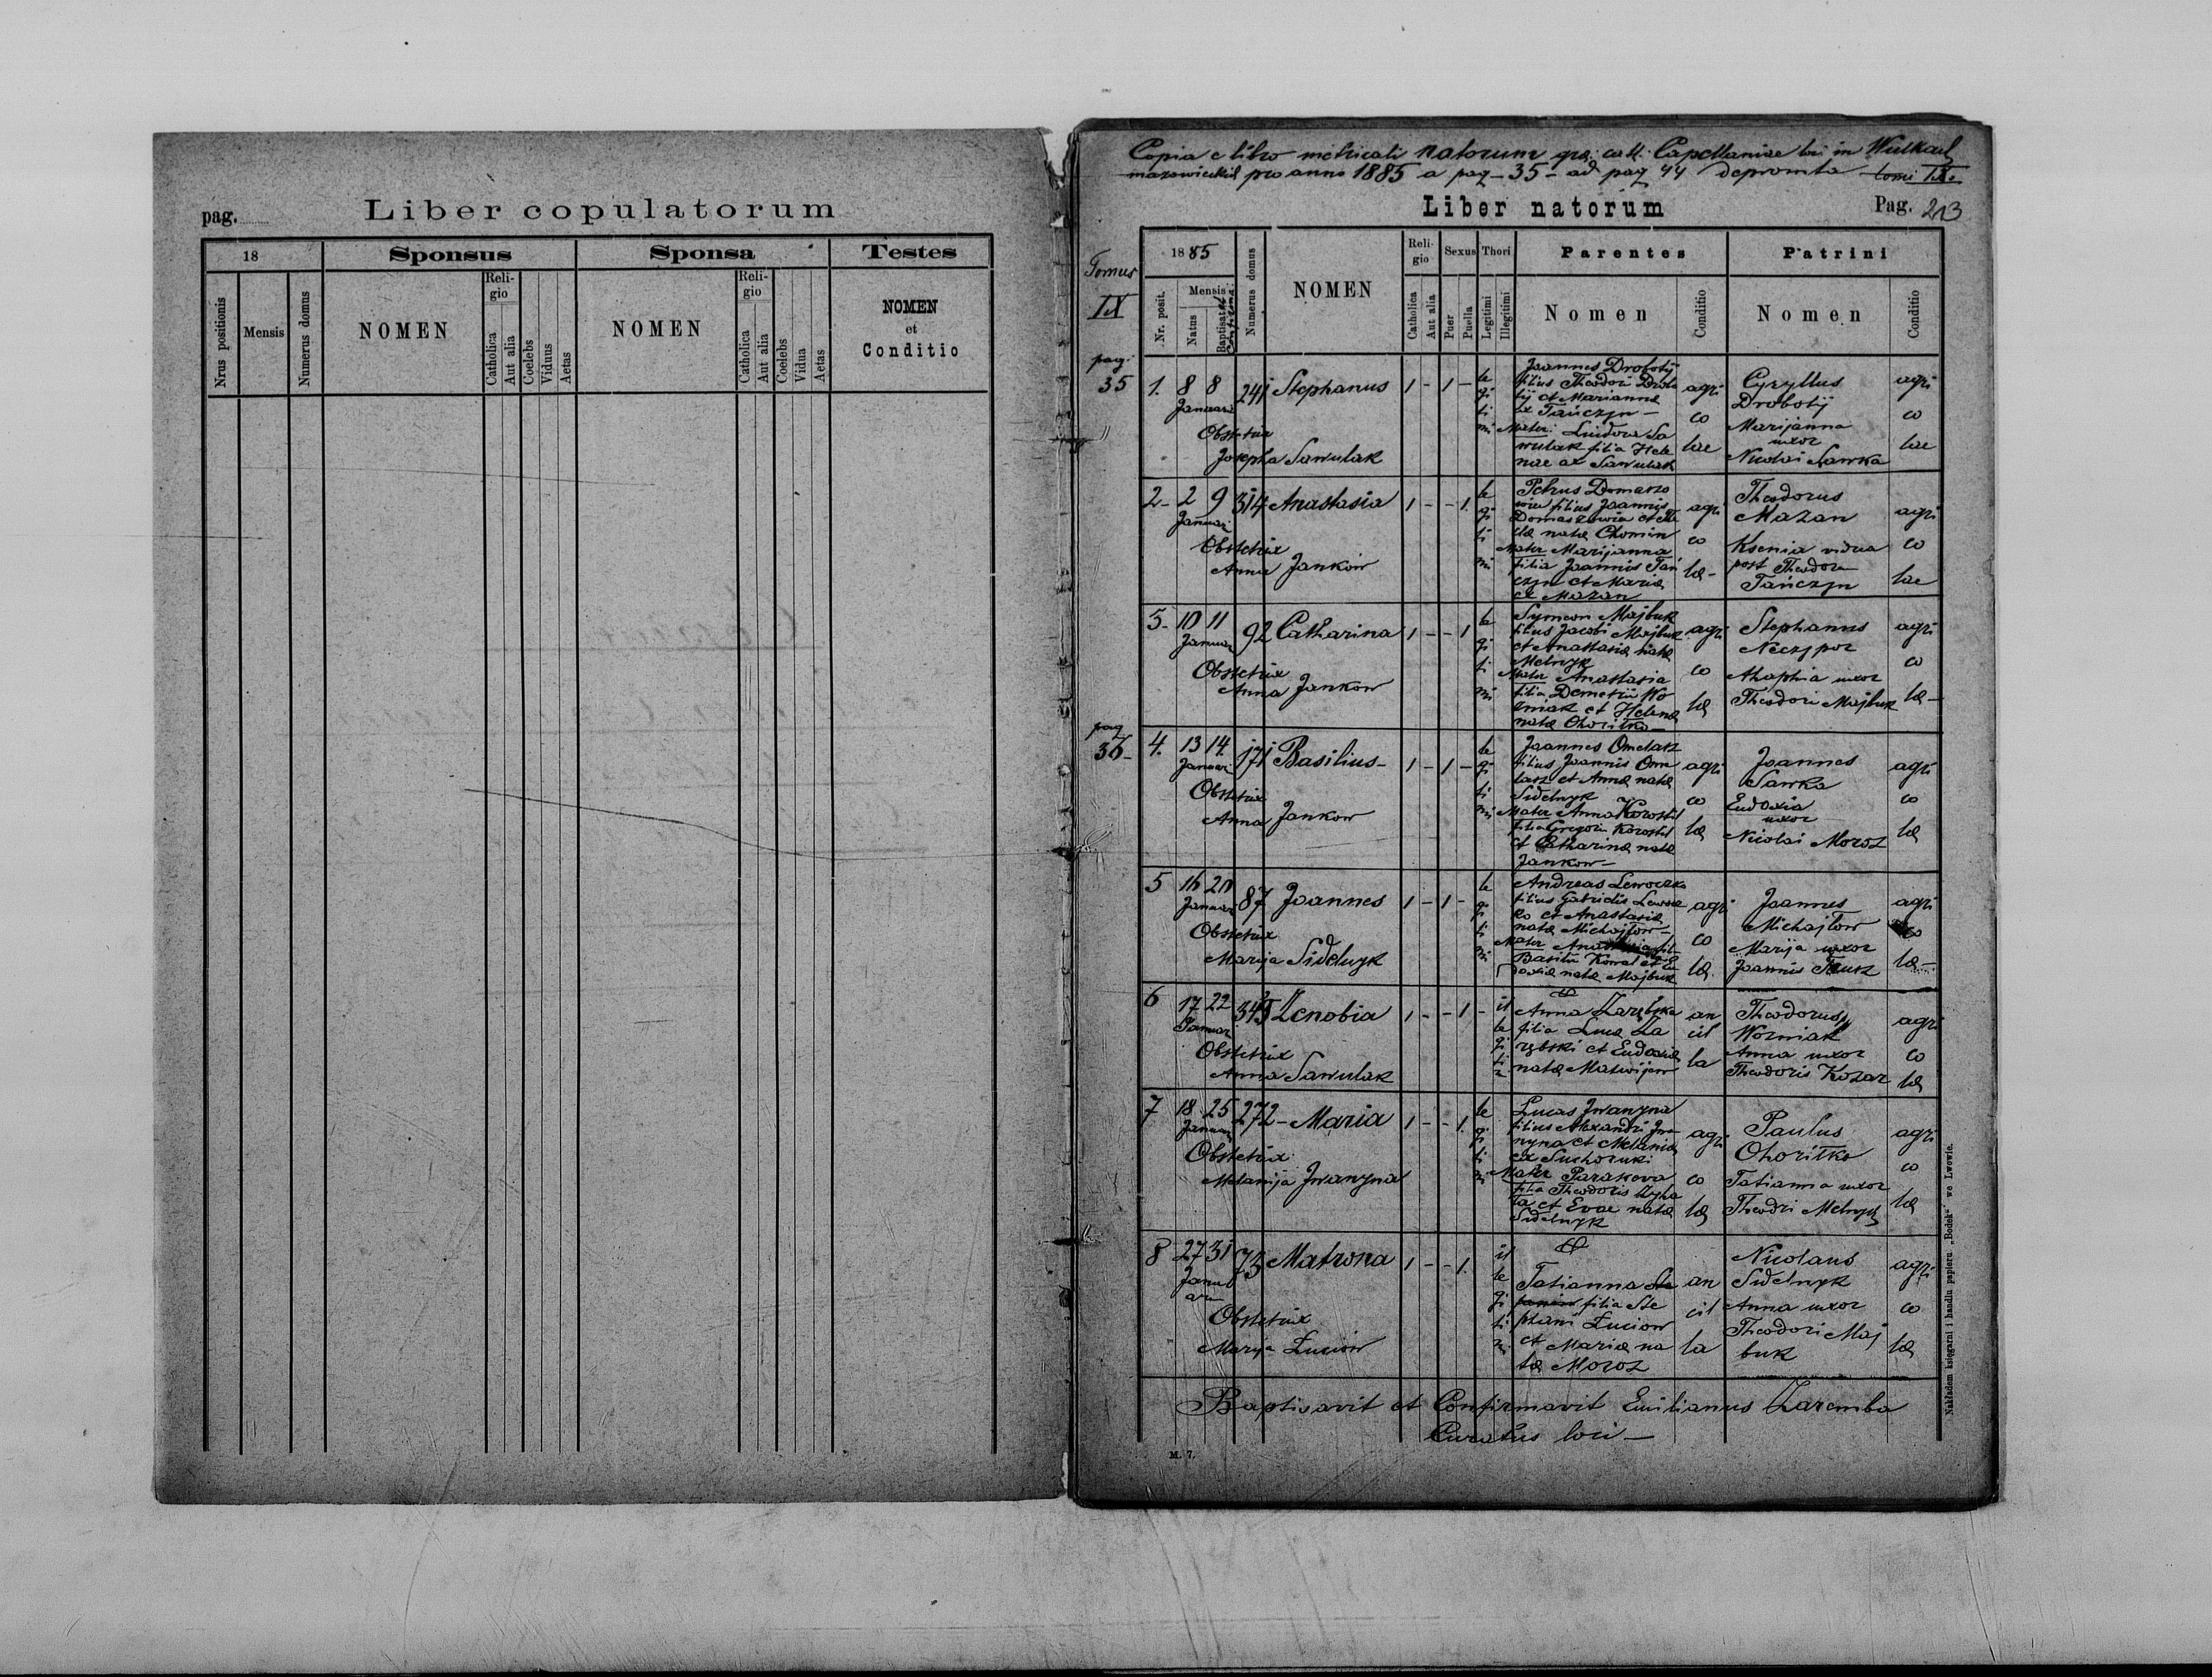 pag.
Liber copulatorum
18
Sponsus
Sponsa
Testes
Nrus positionis
Mensis
Numerus domus
NOMEN
Reli-
gio
Catholica
Aut alia
Coelebs
Viduus
Aetas
NOMEN
Reli-
gio
Catholica
Aut alia
Coelebs
Vidua
Aetas
NOMEN
et
Conditio
Copia e libro metricali natorum gr. cath. Capellaniae loci in Wulka
mazowiecka pro anno 1885 a pag - 35 - ad pag 44 depromta tomi IX.
Liber natorum
Pag. 213
Tomus
IX
1885
Nr. posit.
Mensis
Natus
Baptisatus et
Confirma:
Numerus domus
NOMEN
Reli-
gio
Catholica
Aut alia
Sexus
Puer
Puella
Thori
Legitimi
Illegitimi
Parentes
Nomen
Conditio
Patrini
Nomen
Conditio
pag.
35
1. 8 8 241 Stephanus 1 - 1 -
Januari
Obstetrix
Josepha Sawulak
legitimi
Joannes Drobotij
filius Theodori Drobo
tij et Marianna
ex Tańczyn -
Mater: Eudoxia Sa
wulak filia Hele
nae ex Sawulak
agricolae
Cyryllus
Drobotij
Marijanna
uxor
Nicolai Sawka
agricolae
2- 2 9 314 Anastasia 1 - - 1.
Januari
Obstetrix
Anna Jankow
legitimi
Petrus Domaszo
wicz filius Joannis
natæ Chomin
Mater Marijanna
filia Joannis Tań
czyn et Mariæ
ex Mazan
agricolæ-
Theodorus
Mazan
Ksenia vidua
post Theodoro
Tańczyn
agricolae
5- 10 11 92 Catharina 1 - - 1
Januar
Obstetrix
Anna Jankow
legitimi
Symeon Majbuk
filius Jacobi Majbuk
et Anastasiæ natæ
Melnyk
Mater Anastasia
filia Demetrii Wo
zniak et Helenæ
natæ Ohoritko-
agricolæ
Stephanus
Neczypor
Ahaphia uxor
Theodori Majbuk
agricolæ-
pag
36-
4. 13 14 171 Basilius- 1 - 1 -
Januari
Obstetrix
Anna Jankow
legitimi
Joannes Omelasz
filius Joannis Ome
lasz et Annæ natæ
Sidelnyk
Mater Anna Korostil
filia Gregorii Korostil
et Catharinæ natæ
Jankow-
agricolæ
Joannes
Sawka
Eudoxia
uxor
Nicolai Moroz
agricolæ
5 16 20 87 Joannes 1 - 1 -
Januar
Obstetrix
Marija Sidelnyk
legitimi
Andreas Lewoczko
filius Gabrielis Lewocz
ko et Anastasiæ
natæ Michajłow-
Mater Anastasia fil
Basilii Kowal et Eu
doxiæ natæ Majbuk
agricolæ.
Joannes
Michajłow
Marija uxor
Joannis
agricolæ-
6 17 22 Zenobia 1 - - 1 -
Januar
Obstetrix
Anna Sawulak
illegitimi
Anna Zarębska
filia Lucæ Za
rębski et Eudoxiæ
natæ Matwijew
ancilla
Theodorus
Wozniak
Anna uxor
Theodoris Kozar
agricolæ
7 18 25 272- Maria 1 - - 1.
Januar
Obstetrix
Melanija Iwanyna
legitimi
Lucas Iwanyna
filius Alexandri Iwa
nyna et Melaniæ
ex Suchoruki
Mater Paraskeva
filia Theodoris
et Evae natæ
Sidelnyk
agricolæ
Paulus
Ohoritko
Tatianna uxor
Theodri Melnyk
agricolæ
8 27 31 73 Matrona 1 - - 1.
Janu
ar
Obstetrix
Marija Łuciow
illegitimi
Tatianna
filia Ste
phani Łuciow
et Mariæ na
tæ Moroz
ancilla
Nicolaus
Sidelnyk
Anna uxor
Theodori Maj
buk
agricolæ
Baptisavit et Confirmavit Emilianus Zaremba
Curatus loci -
M. 7.
Nakładem księgarni i handlu papieru „Bodek" we Lwowie.